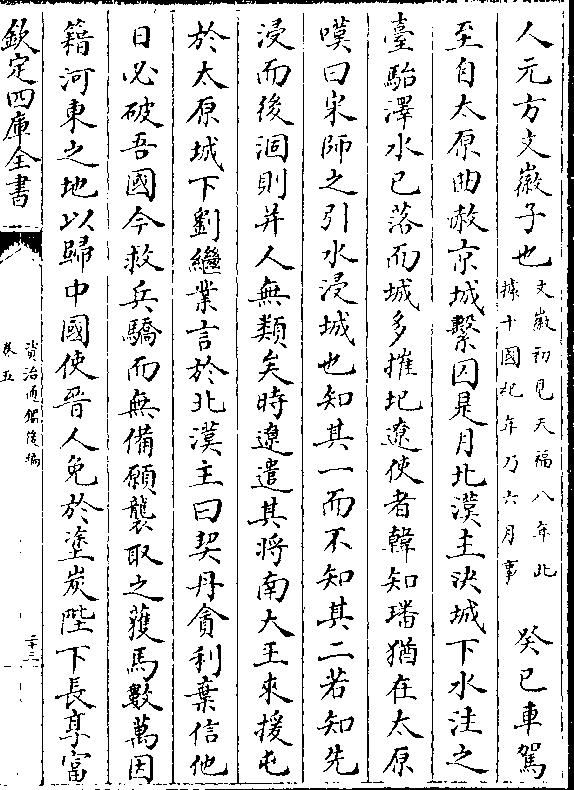 人元方文徽子也文徽初見天福八年此據十國紀年乃六月事癸巳車駕
至自太原曲赦京城繫囚是月北漢主決城下水注之
臺駘澤水已落而城多摧圮遼使者韓知璠猶在太原
嘆曰宋師之引水浸城也知其一而不知其二若知先
浸而後涸則并人無類矣時遼遣其將南大王來援屯
於太原城下劉繼業言於北漢主曰契丹貪利棄信他
日必破吾國今救兵驕而無備願襲取之獲馬數萬因
籍河東之地以歸中國使晉人免於塗炭陛下長享富
欽定四庫全書
資治通鑑後編
卷五
二十三